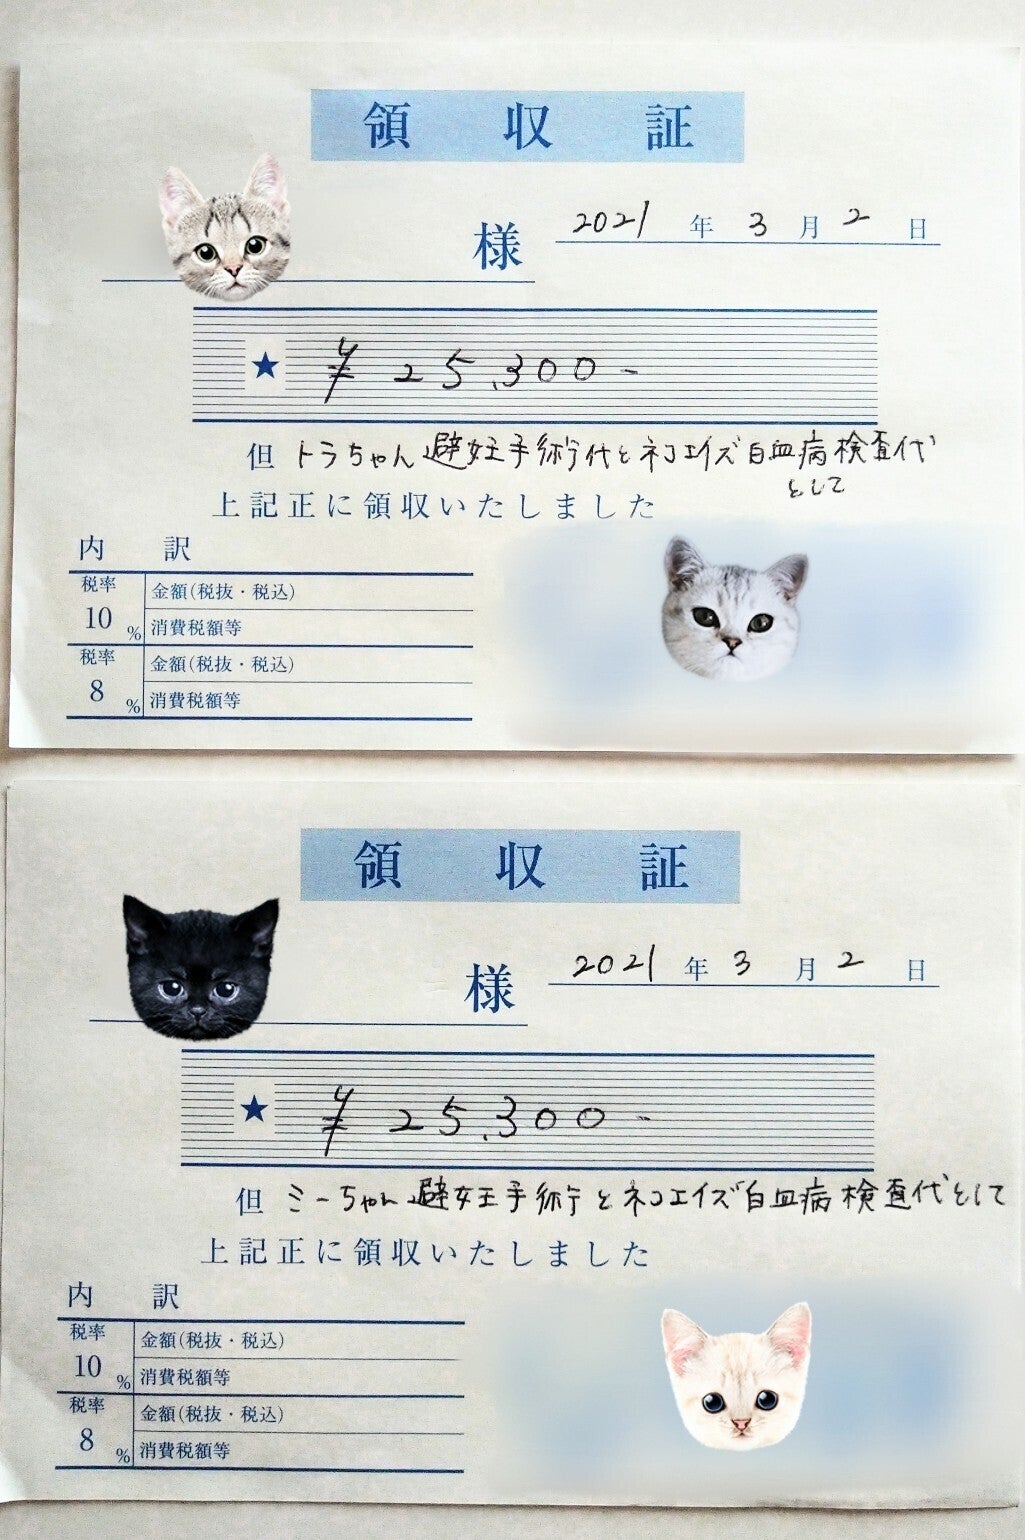 領収証
様 2021年3月2日
★ ¥25,300-
但 トラちゃん避妊手術代とネコエイズ白血病検査代
として
上記正に領収いたしました
内訳
税率 10% 金額(税抜・税込)
消費税額等
税率 8% 金額(税抜・税込)
消費税額等
領収証
様 2021年3月2日
★ ¥25,300-
但 ミーちゃん避妊手術とネコエイズ白血病検査代として
上記正に領収いたしました
内訳
税率 10% 金額(税抜・税込)
消費税額等
税率 8% 金額(税抜・税込)
消費税額等